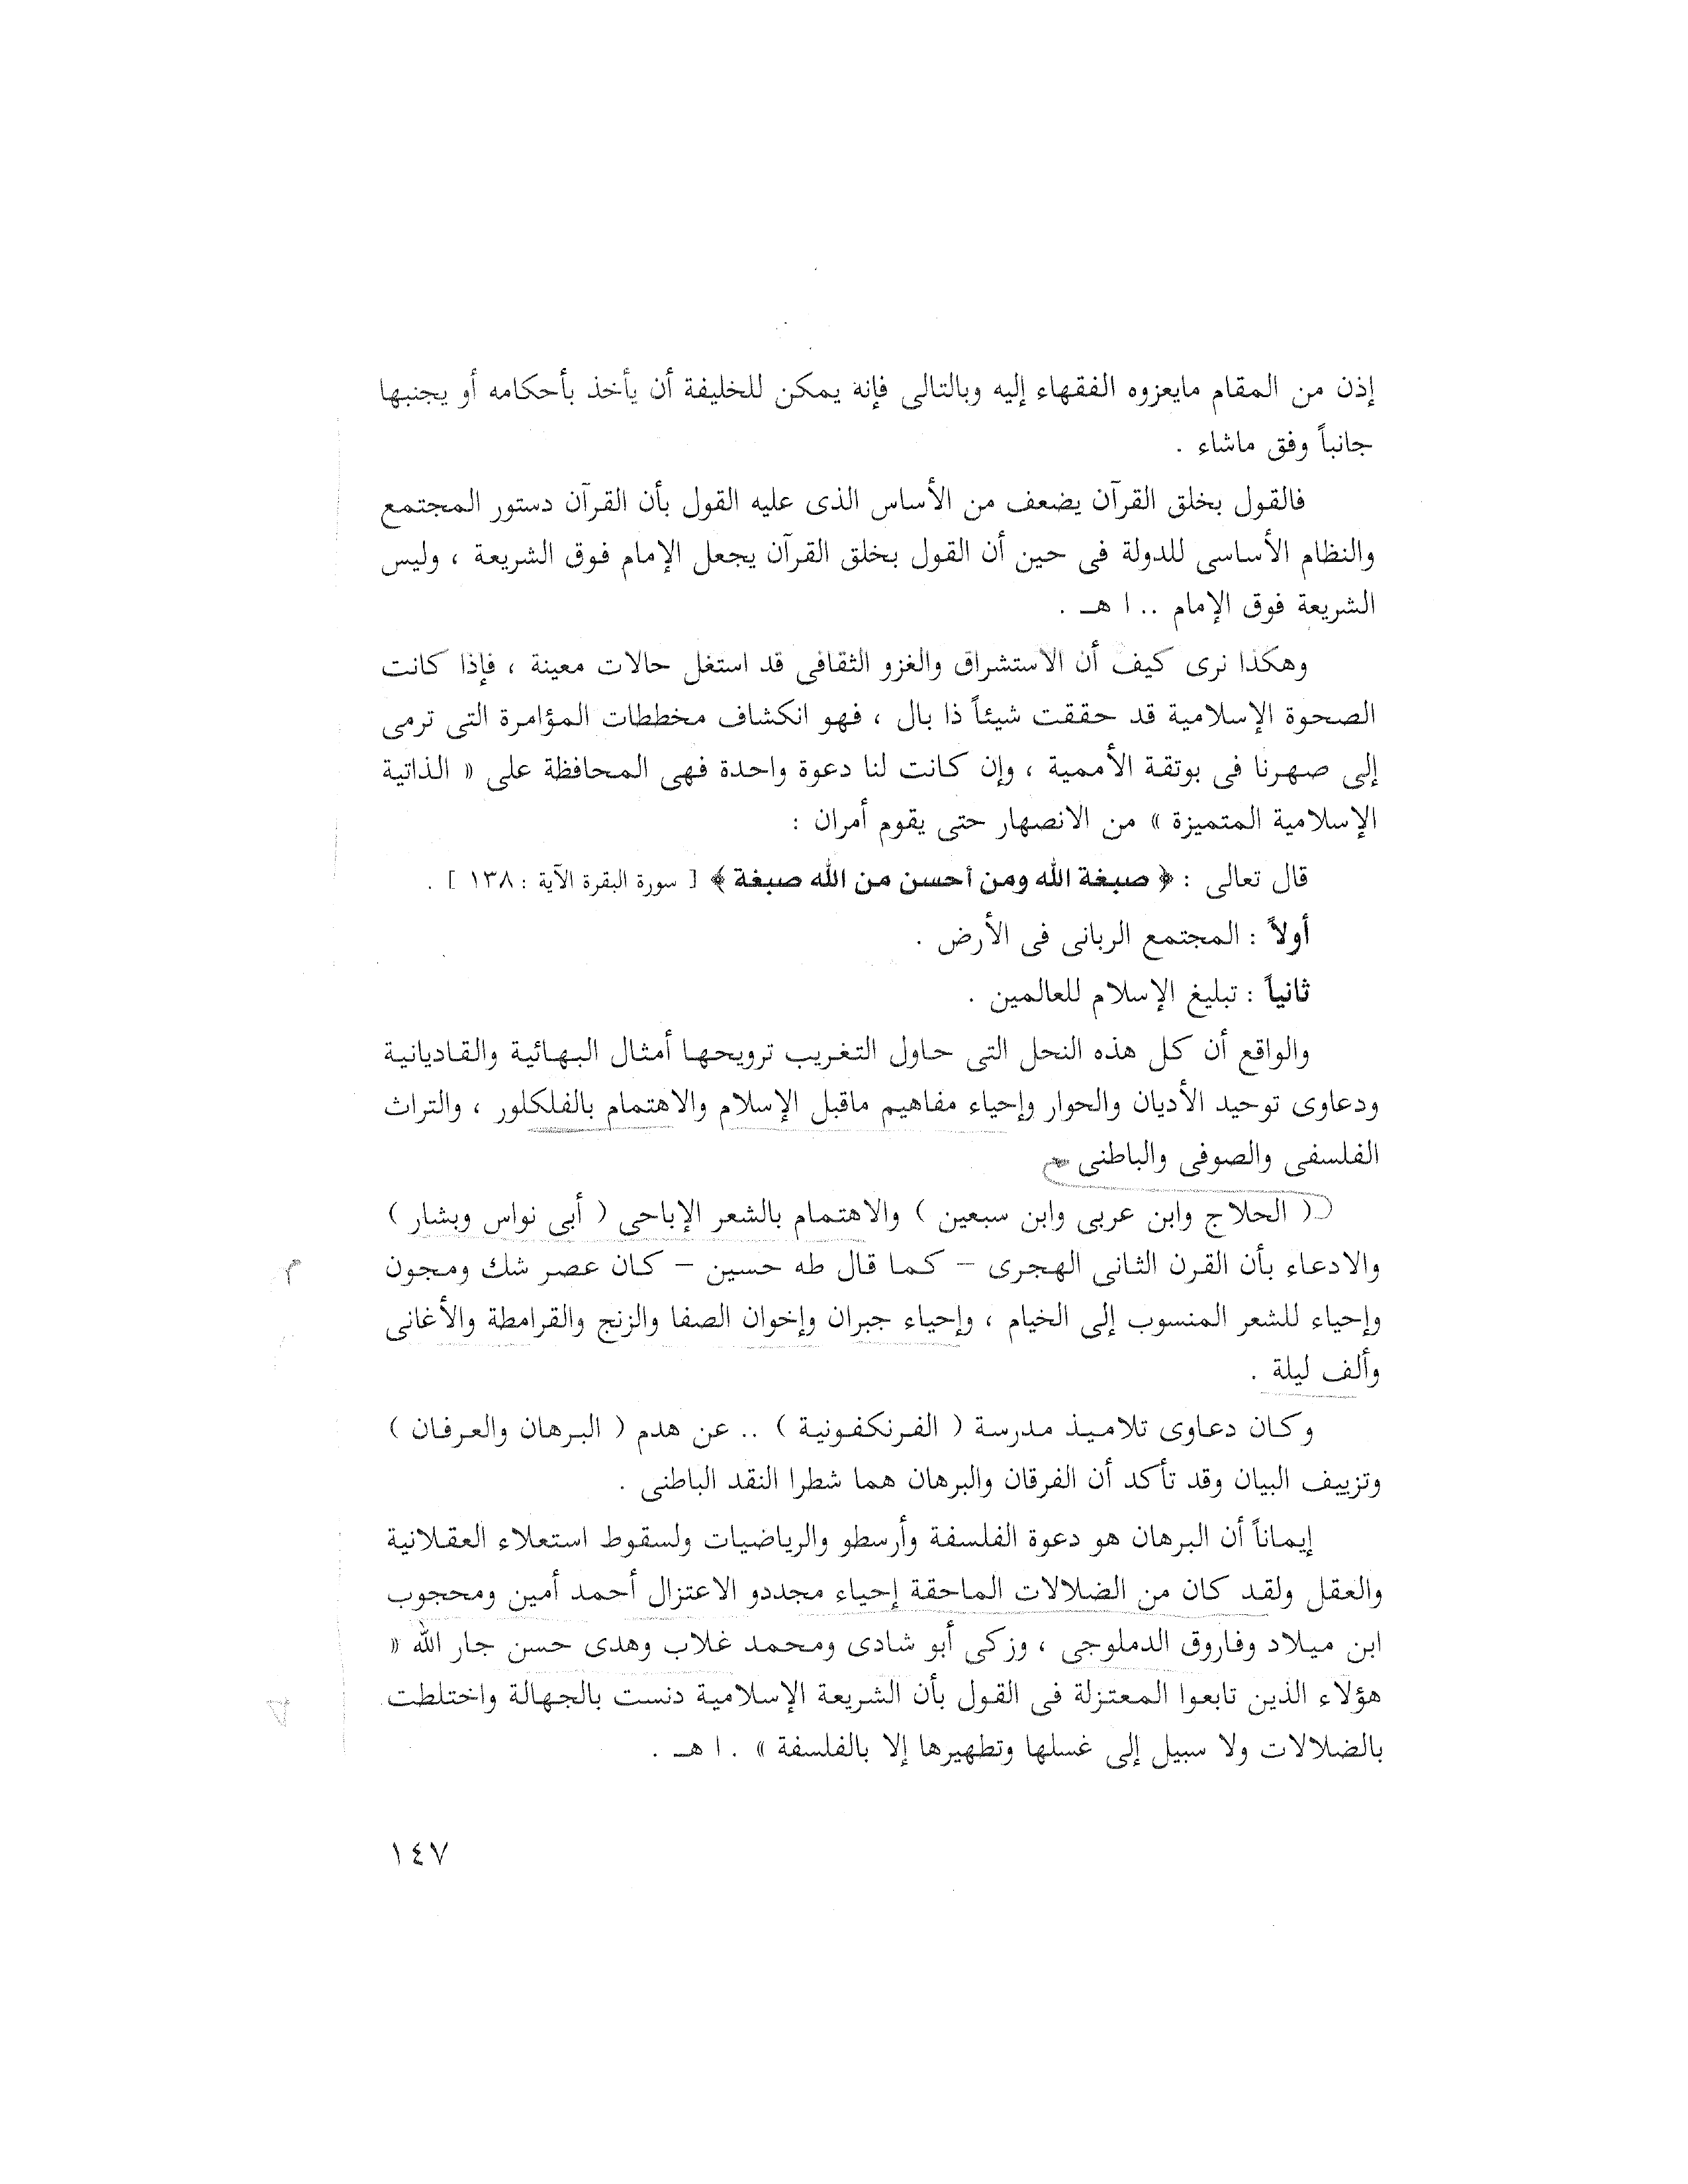 إذن من المقام مايعزوه الفقهاء إليه وبالتالى فإنه يمكن للخليفة أن يأخذ بأحكامه أو يجنبها
جانباً وفق ماشاء .
فالقول بخلق القرآن يضعف من الأساس الذى عليه القول بأن القرآن دستور المجتمع
والنظام الأساسى للدولة فى حين أن القول بخلق القرآن يجعل الإمام فوق الشريعة ، وليس
الشريعة فوق الإمام .. ا هـ .
وهكذا نرى كيف أن الاستشراق والغزو الثقافى قد استغل حالات معينة ، فإذا كانت
الصحوة الإسلامية قد حققت شيئاً ذا بال ، فهو انكشاف مخططات المؤامرة التى ترمى
إلى صهرنا فى بوتقة الأممية ، وإن كانت لنا دعوة واحدة فهى المحافظة على « الذاتية
الإسلامية المتميزة » من الانصهار حتى يقوم أمران :
قال تعالى : ﴿ صبغة الله ومن أحسن من الله صبغة ﴾ [ سورة البقرة الآية : ١٣٨ ] .
أولاً : المجتمع الربانى فى الأرض .
ثانياً : تبليغ الإسلام للعالمين .
والواقع أن كل هذه النحل التى حاول التغريب ترويحها أمثال البهائية والقاديانية
ودعاوى توحيد الأديان والحوار وإحياء مفاهيم ماقبل الإسلام والاهتمام بالفلكلور ، والتراث
الفلسفى والصوفى والباطنى
( الحلاج وابن عربى وابن سبعين ) والاهتمام بالشعر الإباحى ( أبى نواس وبشار )
والادعاء بأن القرن الثانى الهجرى – كما قال طه حسين – كان عصر شك ومجون
وإحياء للشعر المنسوب إلى الخيام ، وإحياء جبران وإخوان الصفا والزنج والقرامطة والأغانى
وألف ليلة .
وكان دعاوى تلاميذ مدرسة ( الفرنكفونية ) .. عن هدم ( البرهان والعرفان )
وتزييف البيان وقد تأكد أن الفرقان والبرهان هما شطرا النقد الباطنى .
إيماناً أن البرهان هو دعوة الفلسفة وأرسطو والرياضيات ولسقوط استعلاء العقلانية
والعقل ولقد كان من الضلالات الماحقة إحياء مجددو الاعتزال أحمد أمين ومحجوب
ابن ميلاد وفاروق الدملوجى ، وزكى أبو شادى ومحمد غلاب وهدى حسن جار الله «
هؤلاء الذين تابعوا المعتزلة فى القول بأن الشريعة الإسلامية دنست بالجهالة واختلطت
بالضلالات ولا سبيل إلى غسلها وتطهيرها إلا بالفلسفة » . ا هـ .
١٤٧